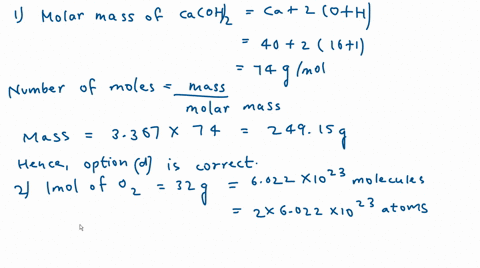 1) Molar mass of Ca(OH)2 = Ca + 2 (O+H)
= 40 + 2 (16+1)
= 74 g/mol
Number of moles = mass / molar mass
Mass = 3.367 × 74 = 249.15g
Hence, option (d) is correct.
2) 1mol of O2 = 32g = 6.022 × 10^23 molecules
= 2×6.022 × 10^23 atoms